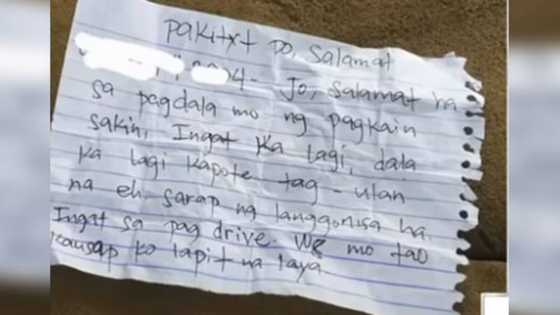 Pakitxt po, Salamat
4- Jo, Salamat ha
sa pagdala mo ng pagkain
sakin, Ingat ka lagi, dala
ka lagi kapote tag-ulan
na eh sarap ng langgonisa ha.
Ingat sa pag drive. Wg mo tao
kausap ko lapit na laya